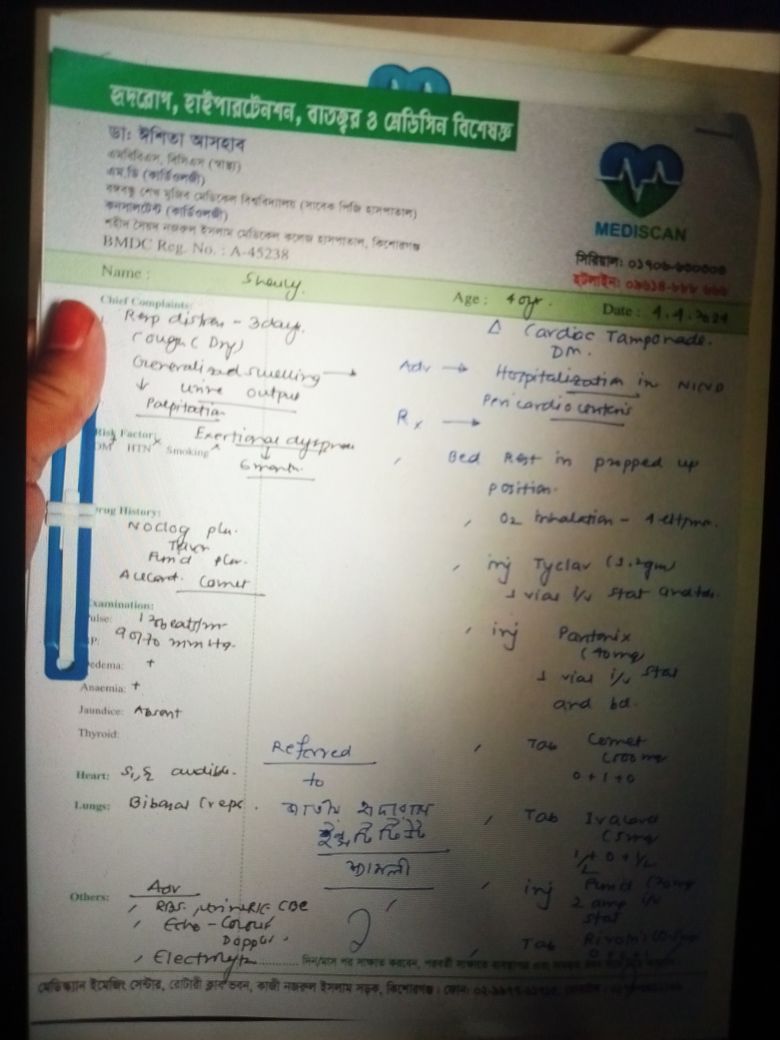 হৃদরোগ, হাইপারটেনশন, বাতজ্বর ও মেডিসিন বিশেষজ্ঞ
ডা: ঈশিতা আসহাব
এমবিবিএস, বিসিএস (স্বাস্থ্য)
এম.ডি (কার্ডিওলজী)
বঙ্গবন্ধু শেখ মুজিব মেডিকেল বিশ্ববিদ্যালয় (সাবেক পিজি হাসপাতাল)
কনসালটেন্ট (কার্ডিওলজী)
শহীদ সৈয়দ নজরুল ইসলাম মেডিকেল কলেজ হাসপাতাল, কিশোরগঞ্জ
BMDC Reg. No. : A-45238
MEDISCAN
সিরিয়াল:
হটলাইন:
Name : Sheuly.
Age : 40yr.
Date : 4.4.2024
Chief Complaints:
Resp distress - 3 days.
Cough (Dry)
Generalized swelling
↓ urine output
Palpitation
Exertional dyspnea
↓
6 month.
Risk Factor:
DM HTN Smoking
Drug History:
Noclog plus.
Fund plus.
Comet
Examination:
Pulse:
90/70 mmHg.
Oedema: +
Anaemia: +
Jaundice: Absent
Thyroid:
Heart: S₁S₂ audible.
Lungs: Bibasal Creps.
Others:
Adv
, RBS, CBC
, Echo - Colour
Doppler
, Electrolyte
Referred
to
জাতীয় হৃদরোগ
Δ Cardiac Tamponade.
DM.
Adv → Hospitalization in NICVD
Pericardiocentesis
Rx →
, Bed Rest in propped up
position.
, O2 inhalation - 4 lit/min.
, inj Tyclav (1.2gm)
1 vial i/v stat and tds.
, inj Pantonix
(40mg)
1 vial i/v stat
and bd.
, Tab Comet
(500mg)
0+1+0
, Tab Ivacard
(5mg)
½+0+½
, inj
2 amp i/v
stat
, Tab
মেডিস্ক্যান ইমেজিং সেন্টার, রোটারী ক্লাব ভবন, কাজী নজরুল ইসলাম সড়ক, কিশোরগঞ্জ।